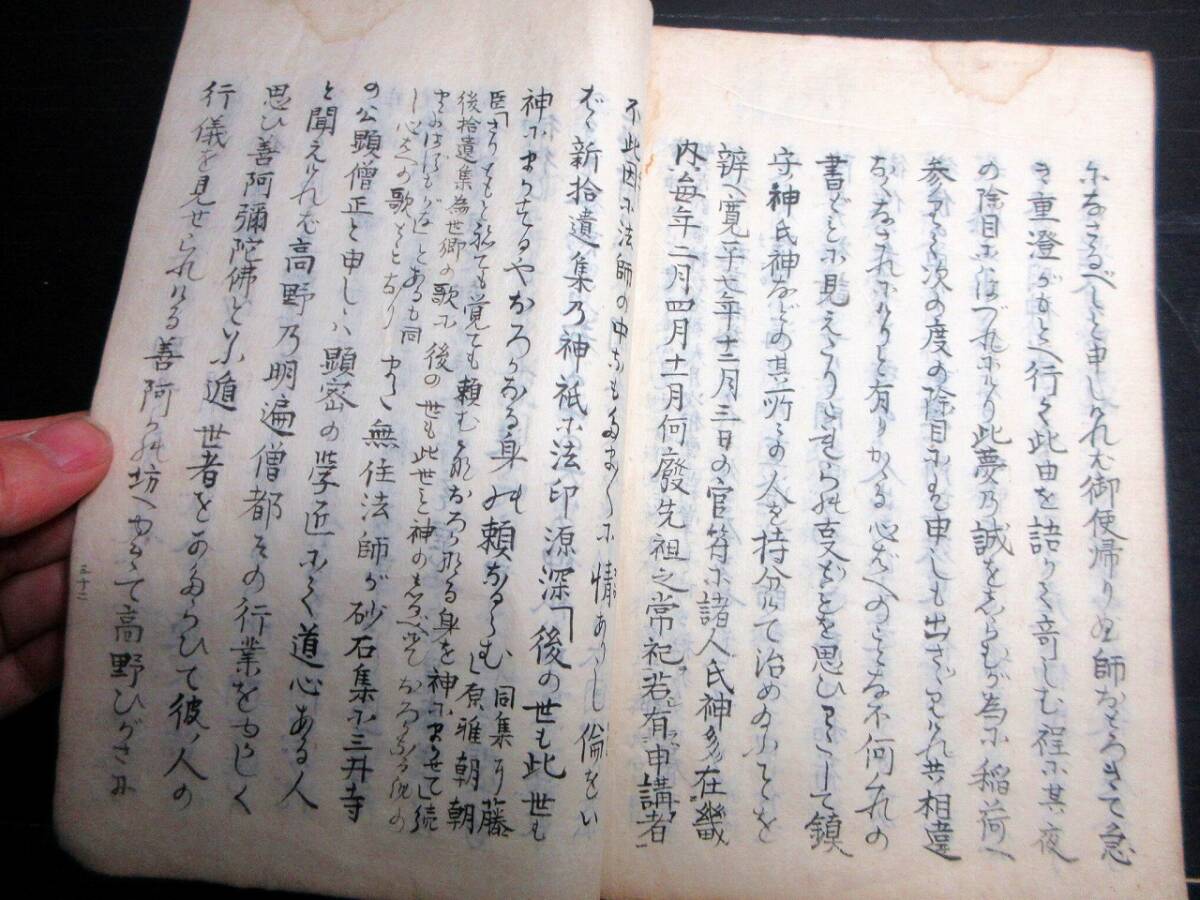 になさるべしと申しければ御使帰りぬ師おどろきて急
き重澄がもとへ行て此由を語りて奇しむ程に其夜
の除目にはづれにけり此夢乃誠をしらむが為に稲荷へ
参りて次の度の除目にも申しも出ざりけれ共相違
なくなされにけりと有りかゝる心ばへのことな不何くれの
書どもに見えたりこれらの古文どもを思ひわたして鎮
守神氏神などの其所々の人を持分けて治め給ふことを
辨へ寛平七年十二月三日の官符に諸人氏神多在畿
内毎年二月四月十一月何廢先祖之常祀若有申講者
不此因に法師の中にもたま〳〵に情ありし倫をい
はゞ新拾遺集乃神祇に法印源深「後の世も此世も
神にまかするやおろかなる身の頼なるらむ」同集に藤原雅朝朝
臣「さりともと祢ても覚ても頼むぞよおろかなる身を神にまかせて」続
後拾遺集為世卿の歌に後の世も此世も神のしるべにておろかなる
心はとあるも同
し心ばへの歌どもなり また無住法師が砂石集に三井寺
の公顕僧正と申しハ顕密の学匠にて道心ある人
と聞えければ高野乃明遍僧都その行業をゆかしく
思ひ善阿彌陀佛と云遁世者をかたらひて彼ノ人の
行儀を見せられける善阿かの坊へゆきて高野ひがさに
三十二